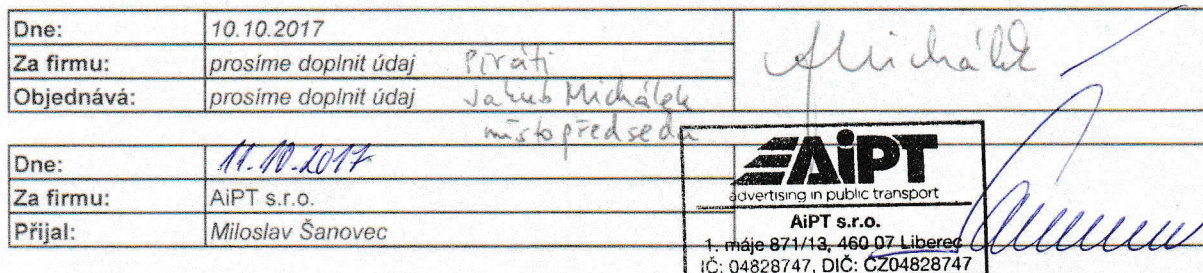 Dne: 10.10.2017
Za firmu: prosíme doplnit údaj Piráti
Objednává: prosíme doplnit údaj Jakub Michálek
místopředseda
Michálek
Dne: 11.10.2017
Za firmu: AiPT s.r.o.
Přijal: Miloslav Šanovec
AiPT
advertising in public transport
AiPT s.r.o.
1. máje 871/13, 460 07 Liberec
IČ: 04828747, DIČ: CZ04828747